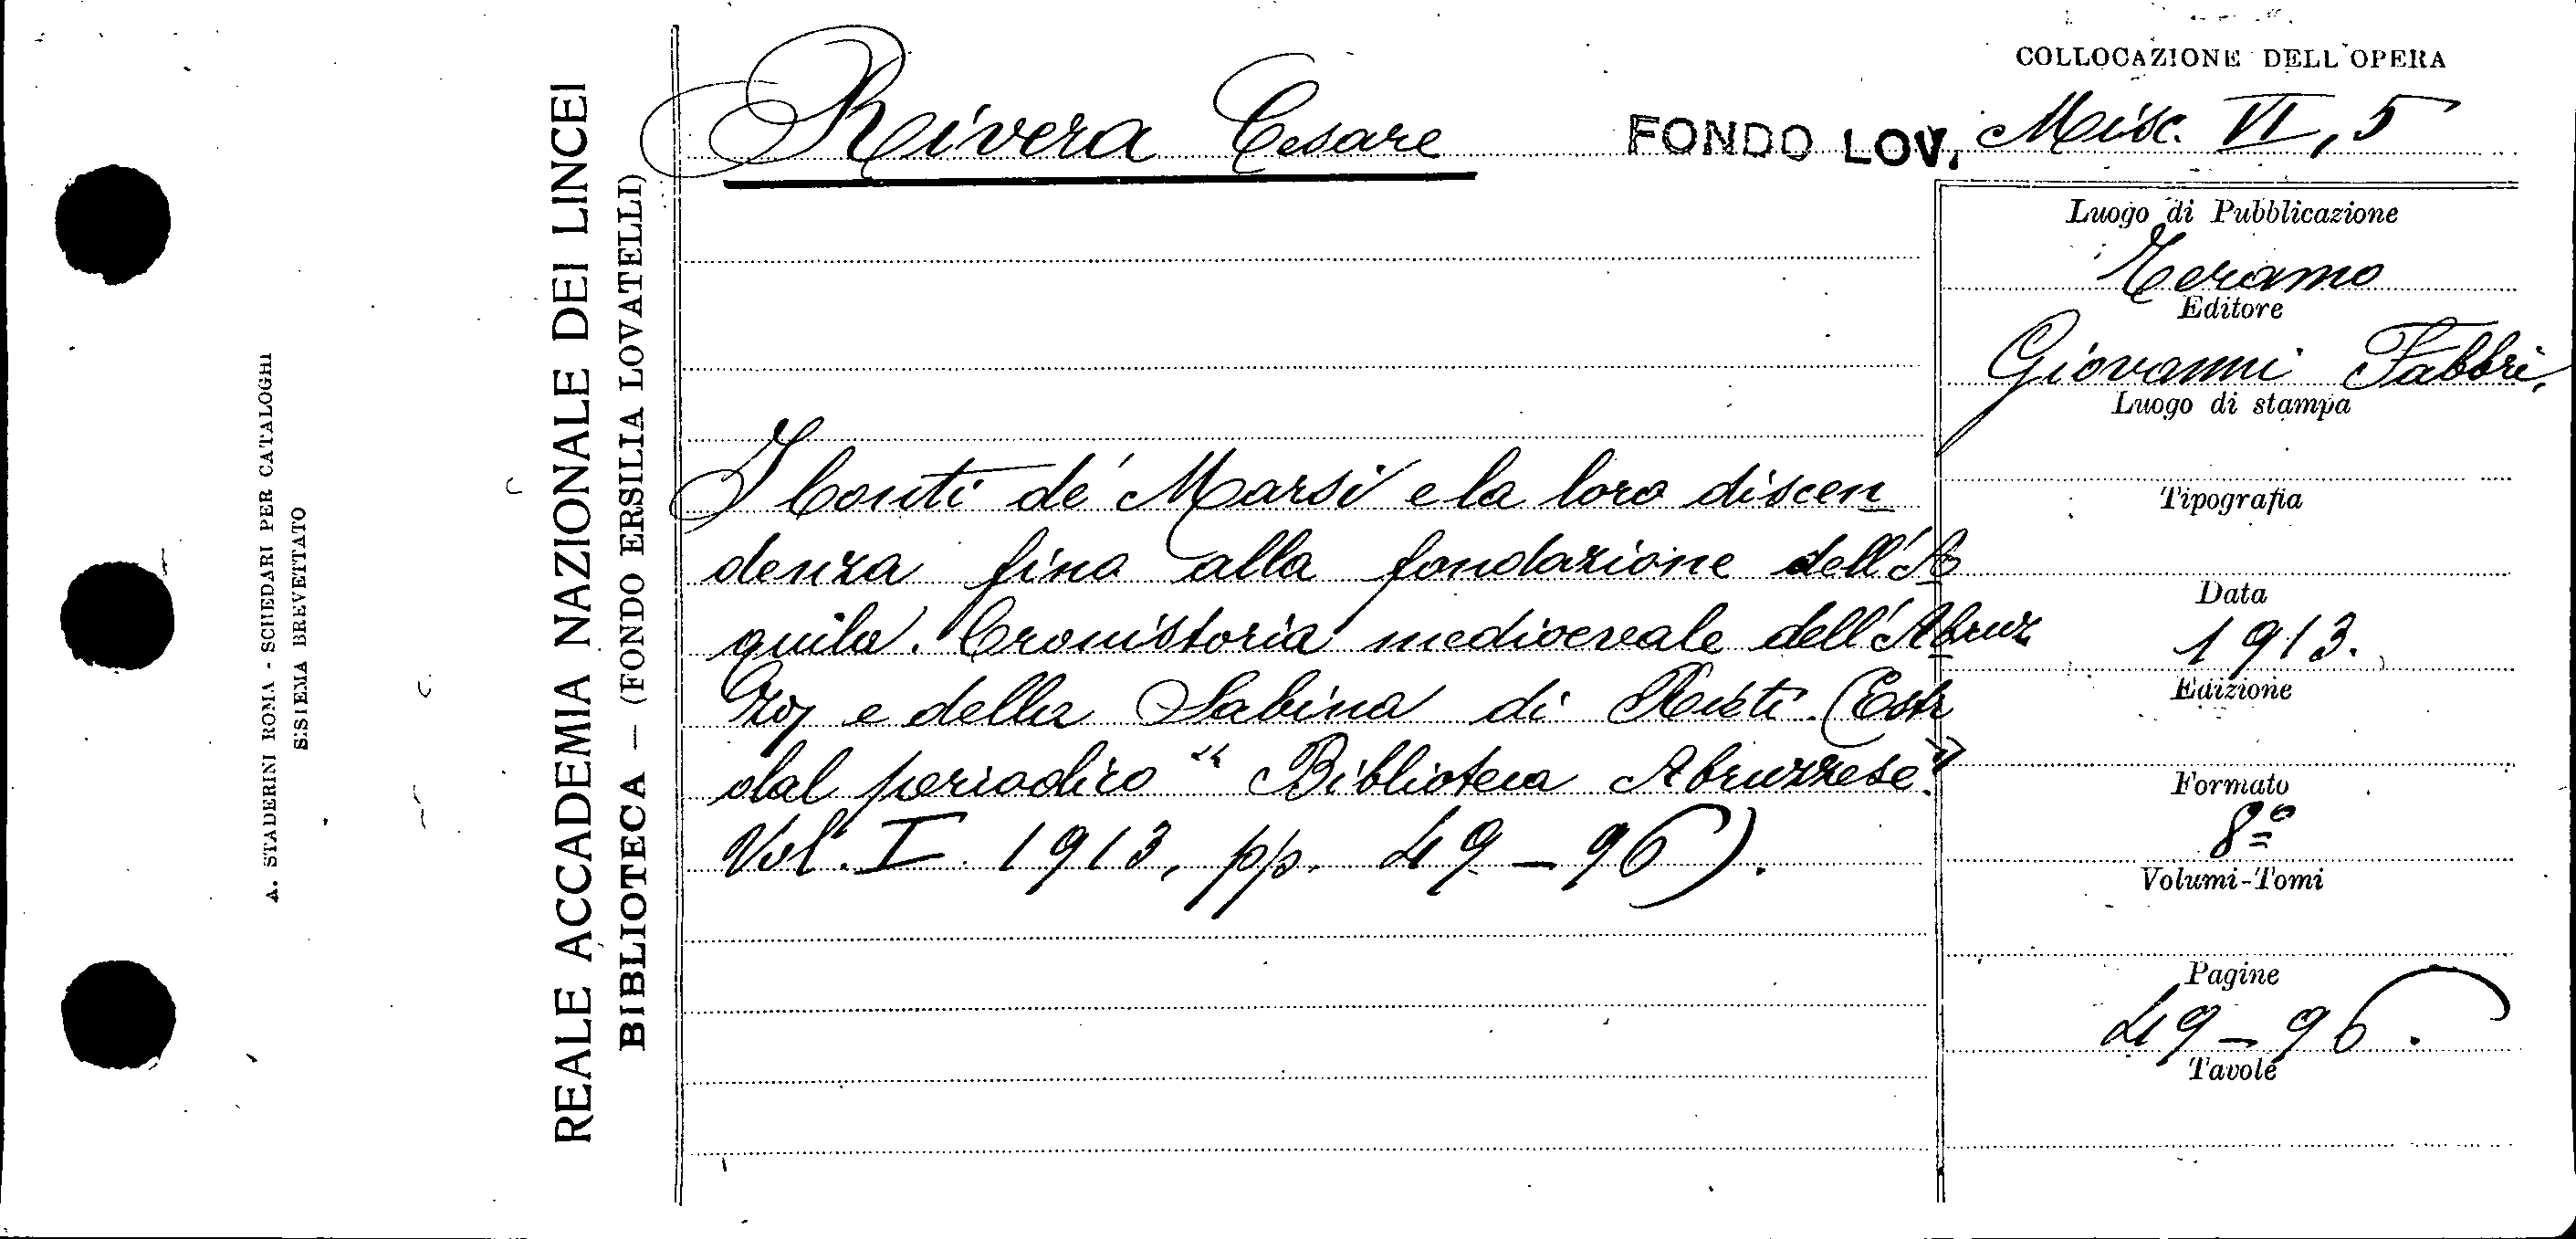 A. STADERINI ROMA - SCHEDARI PER CATALOGHI
SISTEMA BREVETTATO
REALE ACCADEMIA NAZIONALE DEI LINCEI
BIBLIOTECA — (FONDO ERSILIA LOVATELLI)
Rivera Cesare
I Conti de' Marsi e la loro discen
denza fino alla fondazione dell'A
quila. Cronistoria medioevale dell'Abruz
zo, e della Sabina di Rieti. (Estr
dal periodico "Biblioteca Abruzzese"
Vol. I. 1913, pp. 49-96).
COLLOCAZIONE DELL'OPERA
FONDO LOV. Misc. VI, 5
Luogo di Pubblicazione
Teramo
Editore
Giovanni Fabbri.
Luogo di stampa
Tipografia
Data
1913.
Edizione
Formato
8º
Volumi-Tomi
Pagine
49-96.
Tavole